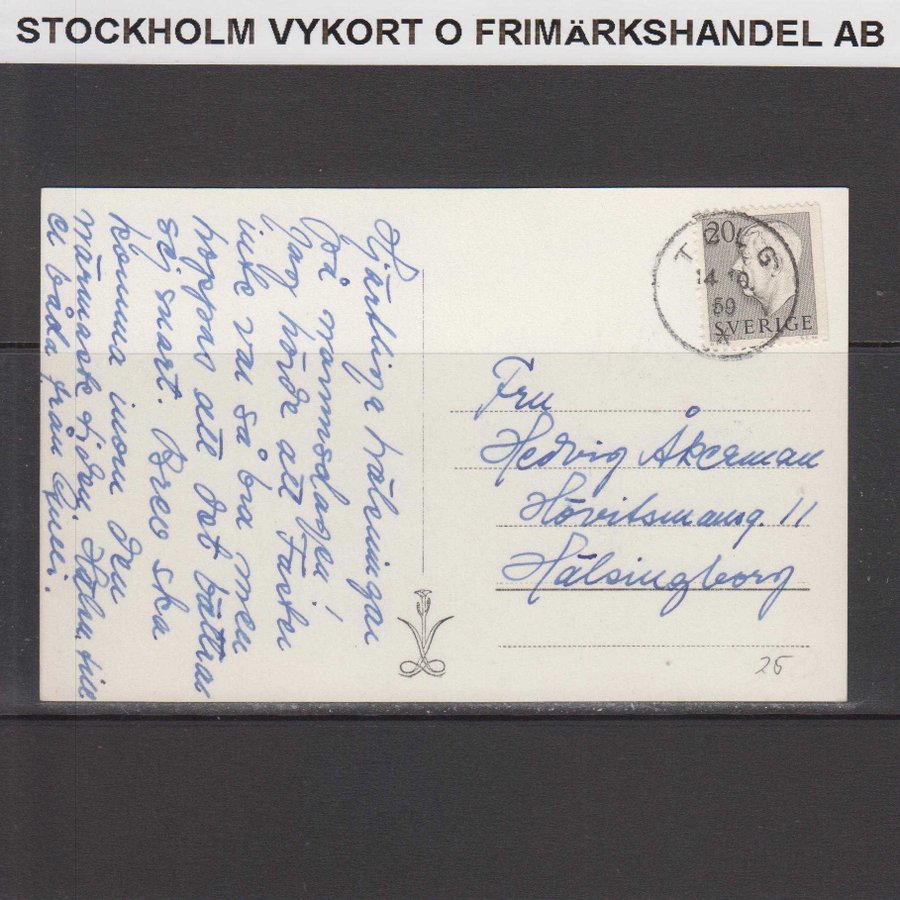 STOCKHOLM VYKORT O FRIMÄRKSHANDEL AB
Hjärtliga hälsningar
på namnsdagen!
Jag hörde att Faster
inte var så bra men
hoppas att det bättrar
sej snart. Brev ska
komma inom den
närmaste tiden. Hälsn. till
er båda från
20
SVERIGE
TOLG
14 10
59
Fru
Hedvig Åkerman
Hövitsmansg. 11
Hälsingborg
25